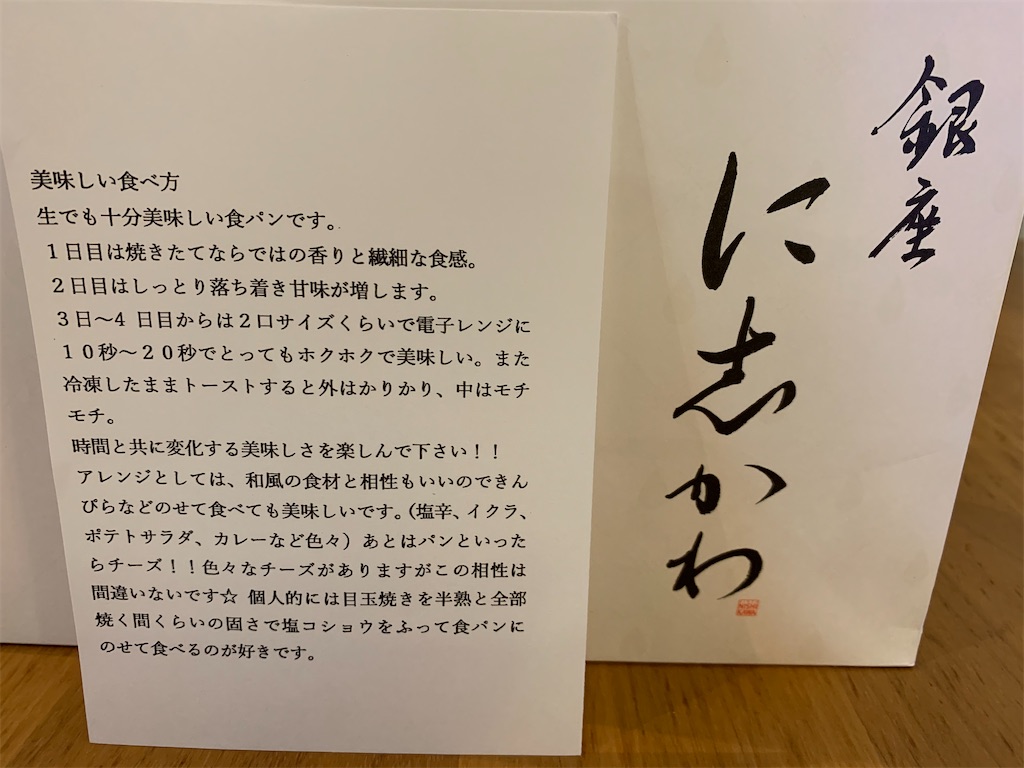 美味しい食べ方
生でも十分美味しい食パンです。
１日目は焼きたてならではの香りと繊細な食感。
２日目はしっとり落ち着き甘味が増します。
３日～4 日目からは２口サイズくらいで電子レンジに
１０秒～２０秒でとってもホクホクで美味しい。また
冷凍したままトーストすると外はかりかり、中はモチ
モチ。
時間と共に変化する美味しさを楽しんで下さい！！
アレンジとしては、和風の食材と相性もいいのできん
ぴらなどのせて食べても美味しいです。（塩辛、イクラ、
ポテトサラダ、カレーなど色々）あとはパンといった
らチーズ！！色々なチーズがありますがこの相性は
間違いないです☆ 個人的には目玉焼きを半熟と全部
焼く間くらいの固さで塩コショウをふって食パンに
のせて食べるのが好きです。
銀座
に志かわ
NISHI
KAWA